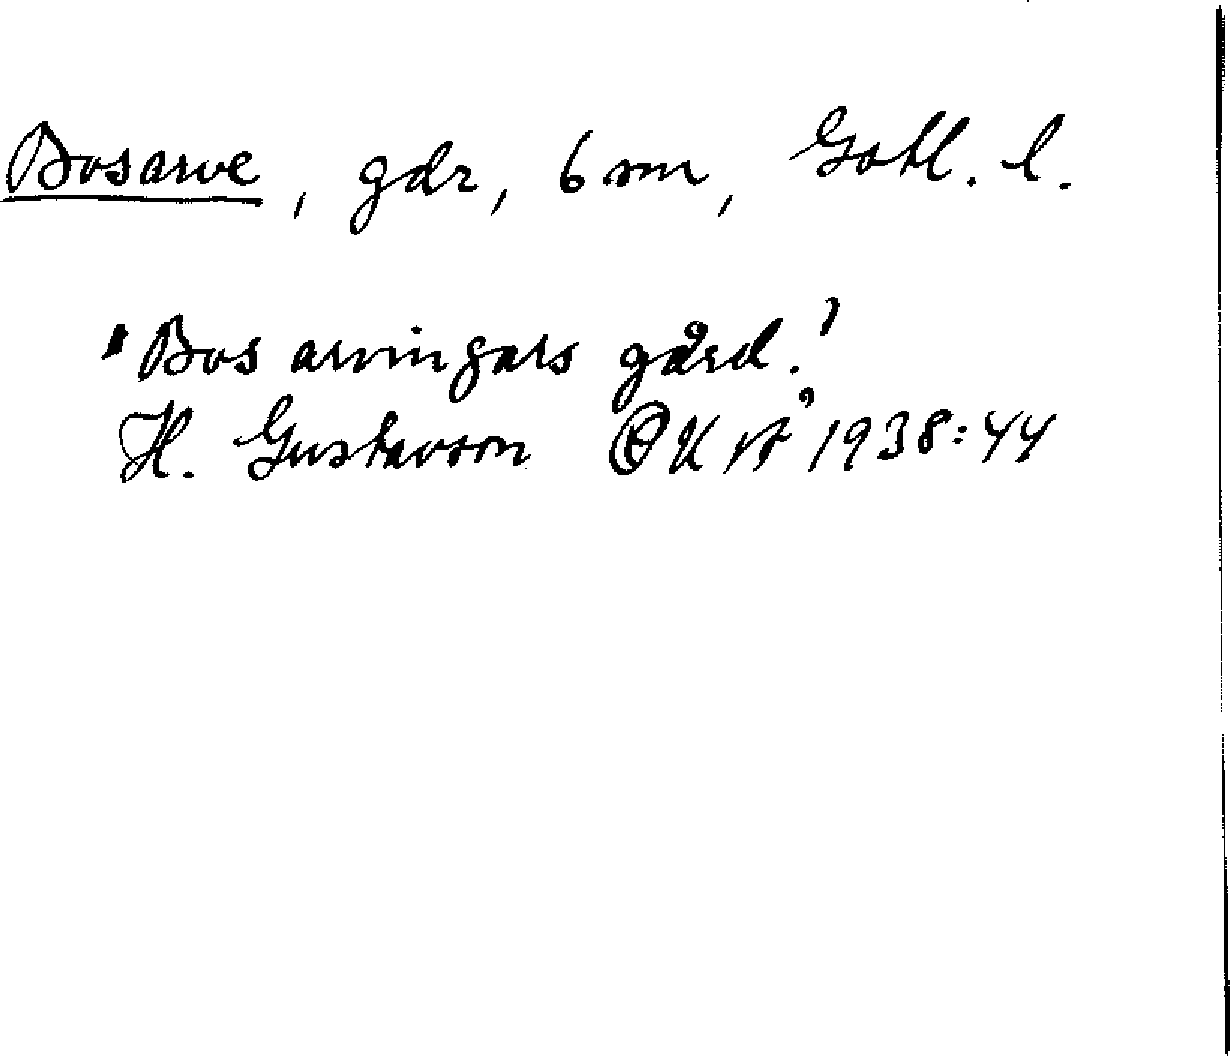 Bosarve, gdr, 6 sn, Gotl. l.
'Bos arvingars gård.'
H. Gustavson GKVÅ 1938:44